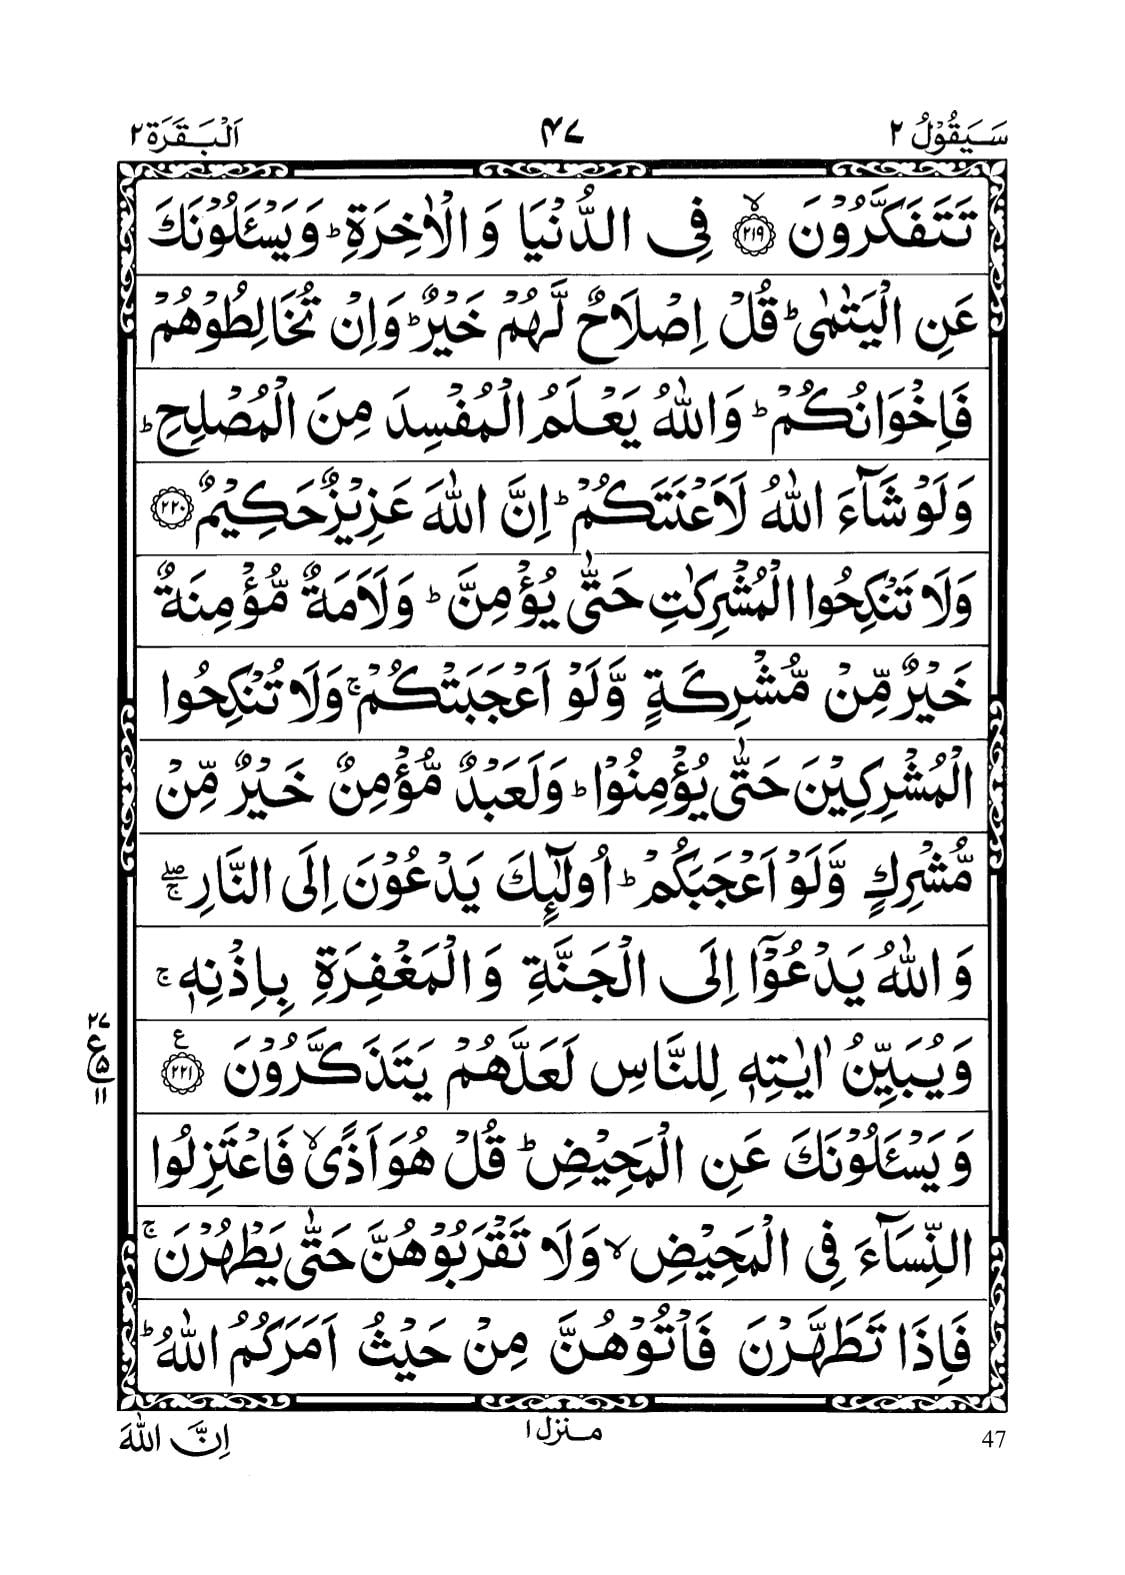 سَيَقُوۡلُ ٢
٤٧
اَلۡبَقَرَة ٢
تَتَفَكَّرُوۡنَ ۙ‏﴿۲۱۹﴾ فِى الدُّنۡيَا وَالۡاٰخِرَةِ‌ؕ وَيَسۡـئَلُوۡنَكَ
عَنِ الۡيَتٰمٰى‌ؕ قُلۡ اِصۡلَاحٌ لَّهُمۡ خَيۡرٌ‌ؕ وَاِنۡ تُخَالِطُوۡهُمۡ
فَاِخۡوَانُكُمۡ‌ؕ وَاللّٰهُ يَعۡلَمُ الۡمُفۡسِدَ مِنَ الۡمُصۡلِحِ‌ؕ
وَلَوۡ شَآءَ اللّٰهُ لَاَعۡنَتَكُمۡ‌ؕ اِنَّ اللّٰهَ عَزِيۡزٌ حَكِيۡمٌ ﴿۲۲۰﴾
وَلَا تَنۡكِحُوا الۡمُشۡرِكٰتِ حَتّٰى يُؤۡمِنَّ‌ؕ وَلَاَمَةٌ مُّؤۡمِنَةٌ
خَيۡرٌ مِّنۡ مُّشۡرِكَةٍ وَّلَوۡ اَعۡجَبَتۡكُمۡ‌ۚ وَلَا تُنۡكِحُوا
الۡمُشۡرِكِيۡنَ حَتّٰى يُؤۡمِنُوۡا‌ؕ وَلَعَبۡدٌ مُّؤۡمِنٌ خَيۡرٌ مِّنۡ
مُّشۡرِكٍ وَّلَوۡ اَعۡجَبَكُمۡ‌ؕ اُولٰٓئِكَ يَدۡعُوۡنَ اِلَى النَّارِ ۖۚ
وَاللّٰهُ يَدۡعُوۡٓا اِلَى الۡجَنَّةِ وَالۡمَغۡفِرَةِ بِاِذۡنِهٖ‌ۚ
وَيُبَيِّنُ اٰيٰتِهٖ لِلنَّاسِ لَعَلَّهُمۡ يَتَذَكَّرُوۡنَ ﴿۲۲۱﴾ ع
٢٧
ع ٥
١١
وَيَسۡـئَلُوۡنَكَ عَنِ الۡمَحِيۡضِ‌ؕ قُلۡ هُوَ اَذًىۙ فَاعۡتَزِلُوا
النِّسَآءَ فِى الۡمَحِيۡضِ‌ۙ وَلَا تَقۡرَبُوۡهُنَّ حَتّٰى يَطۡهُرۡنَ‌ۚ
فَاِذَا تَطَهَّرۡنَ فَاۡتُوۡهُنَّ مِنۡ حَيۡثُ اَمَرَكُمُ اللّٰهُ‌ؕ
47
منزل ١
اِنَّ اللّٰهَ